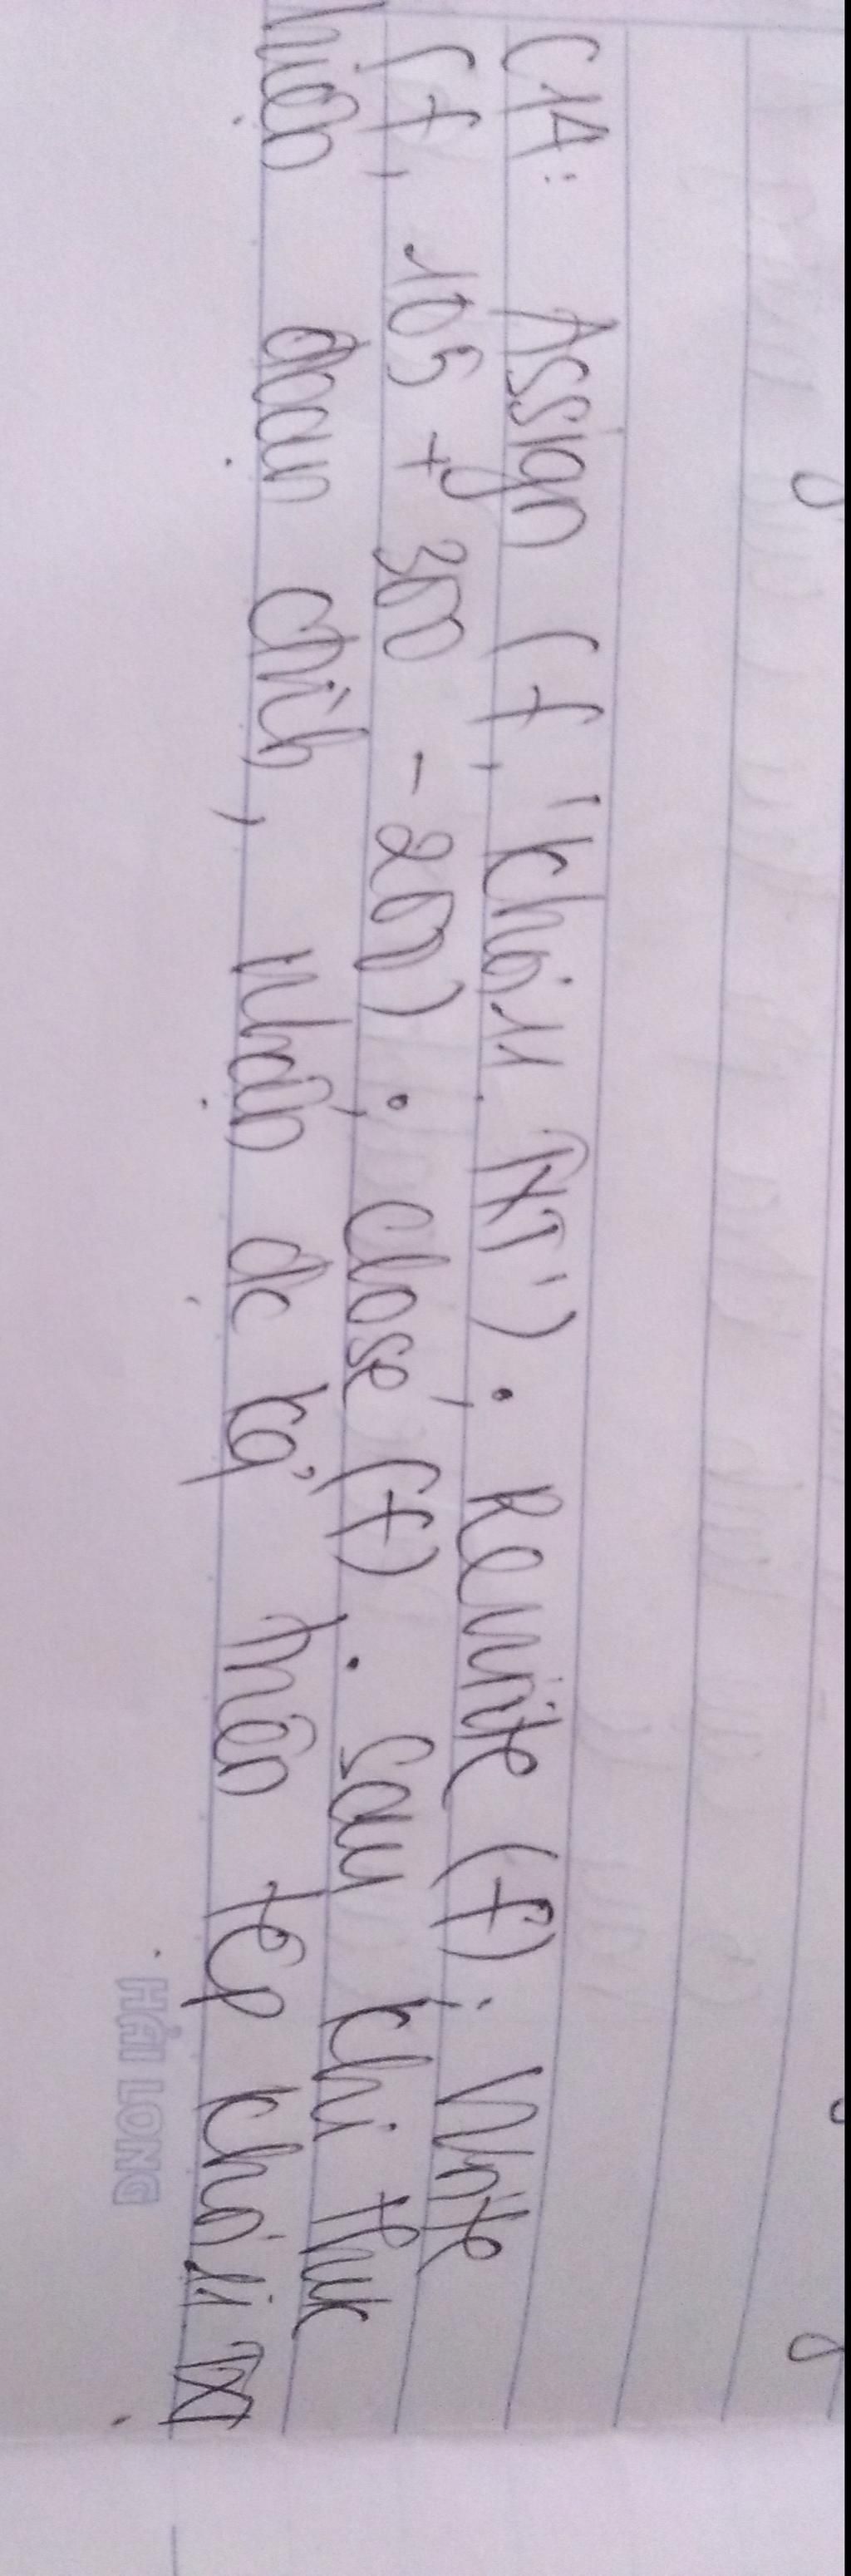 C14: Assign (f, 'khối 11. TXT'); Rewrite (f); Write
(f, 105 + 300 - 200); close (f); Sau khi thực
hiện đoạn ctrình, nhận đc kq, trên tệp khối 11 TXT
HẢI LONG